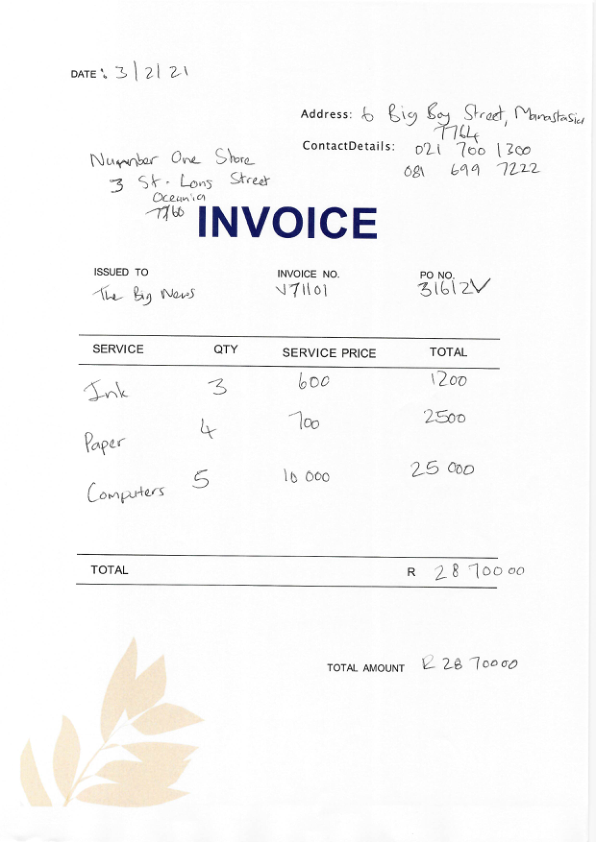 DATE : 3/2/21
Address: 6 Big Boy Street, Manastasia
7764
ContactDetails: 021 700 1300
081 699 7222
Number One Store
3 St. Lons Street
Oceania
7760
INVOICE
ISSUED TO INVOICE NO. PO NO.
The Big News V71101 31612V
SERVICE QTY SERVICE PRICE TOTAL
Ink 3 600 1200
Paper 4 700 2500
Computers 5 10 000 25 000
TOTAL R 28 700 00
TOTAL AMOUNT R 28 700 00